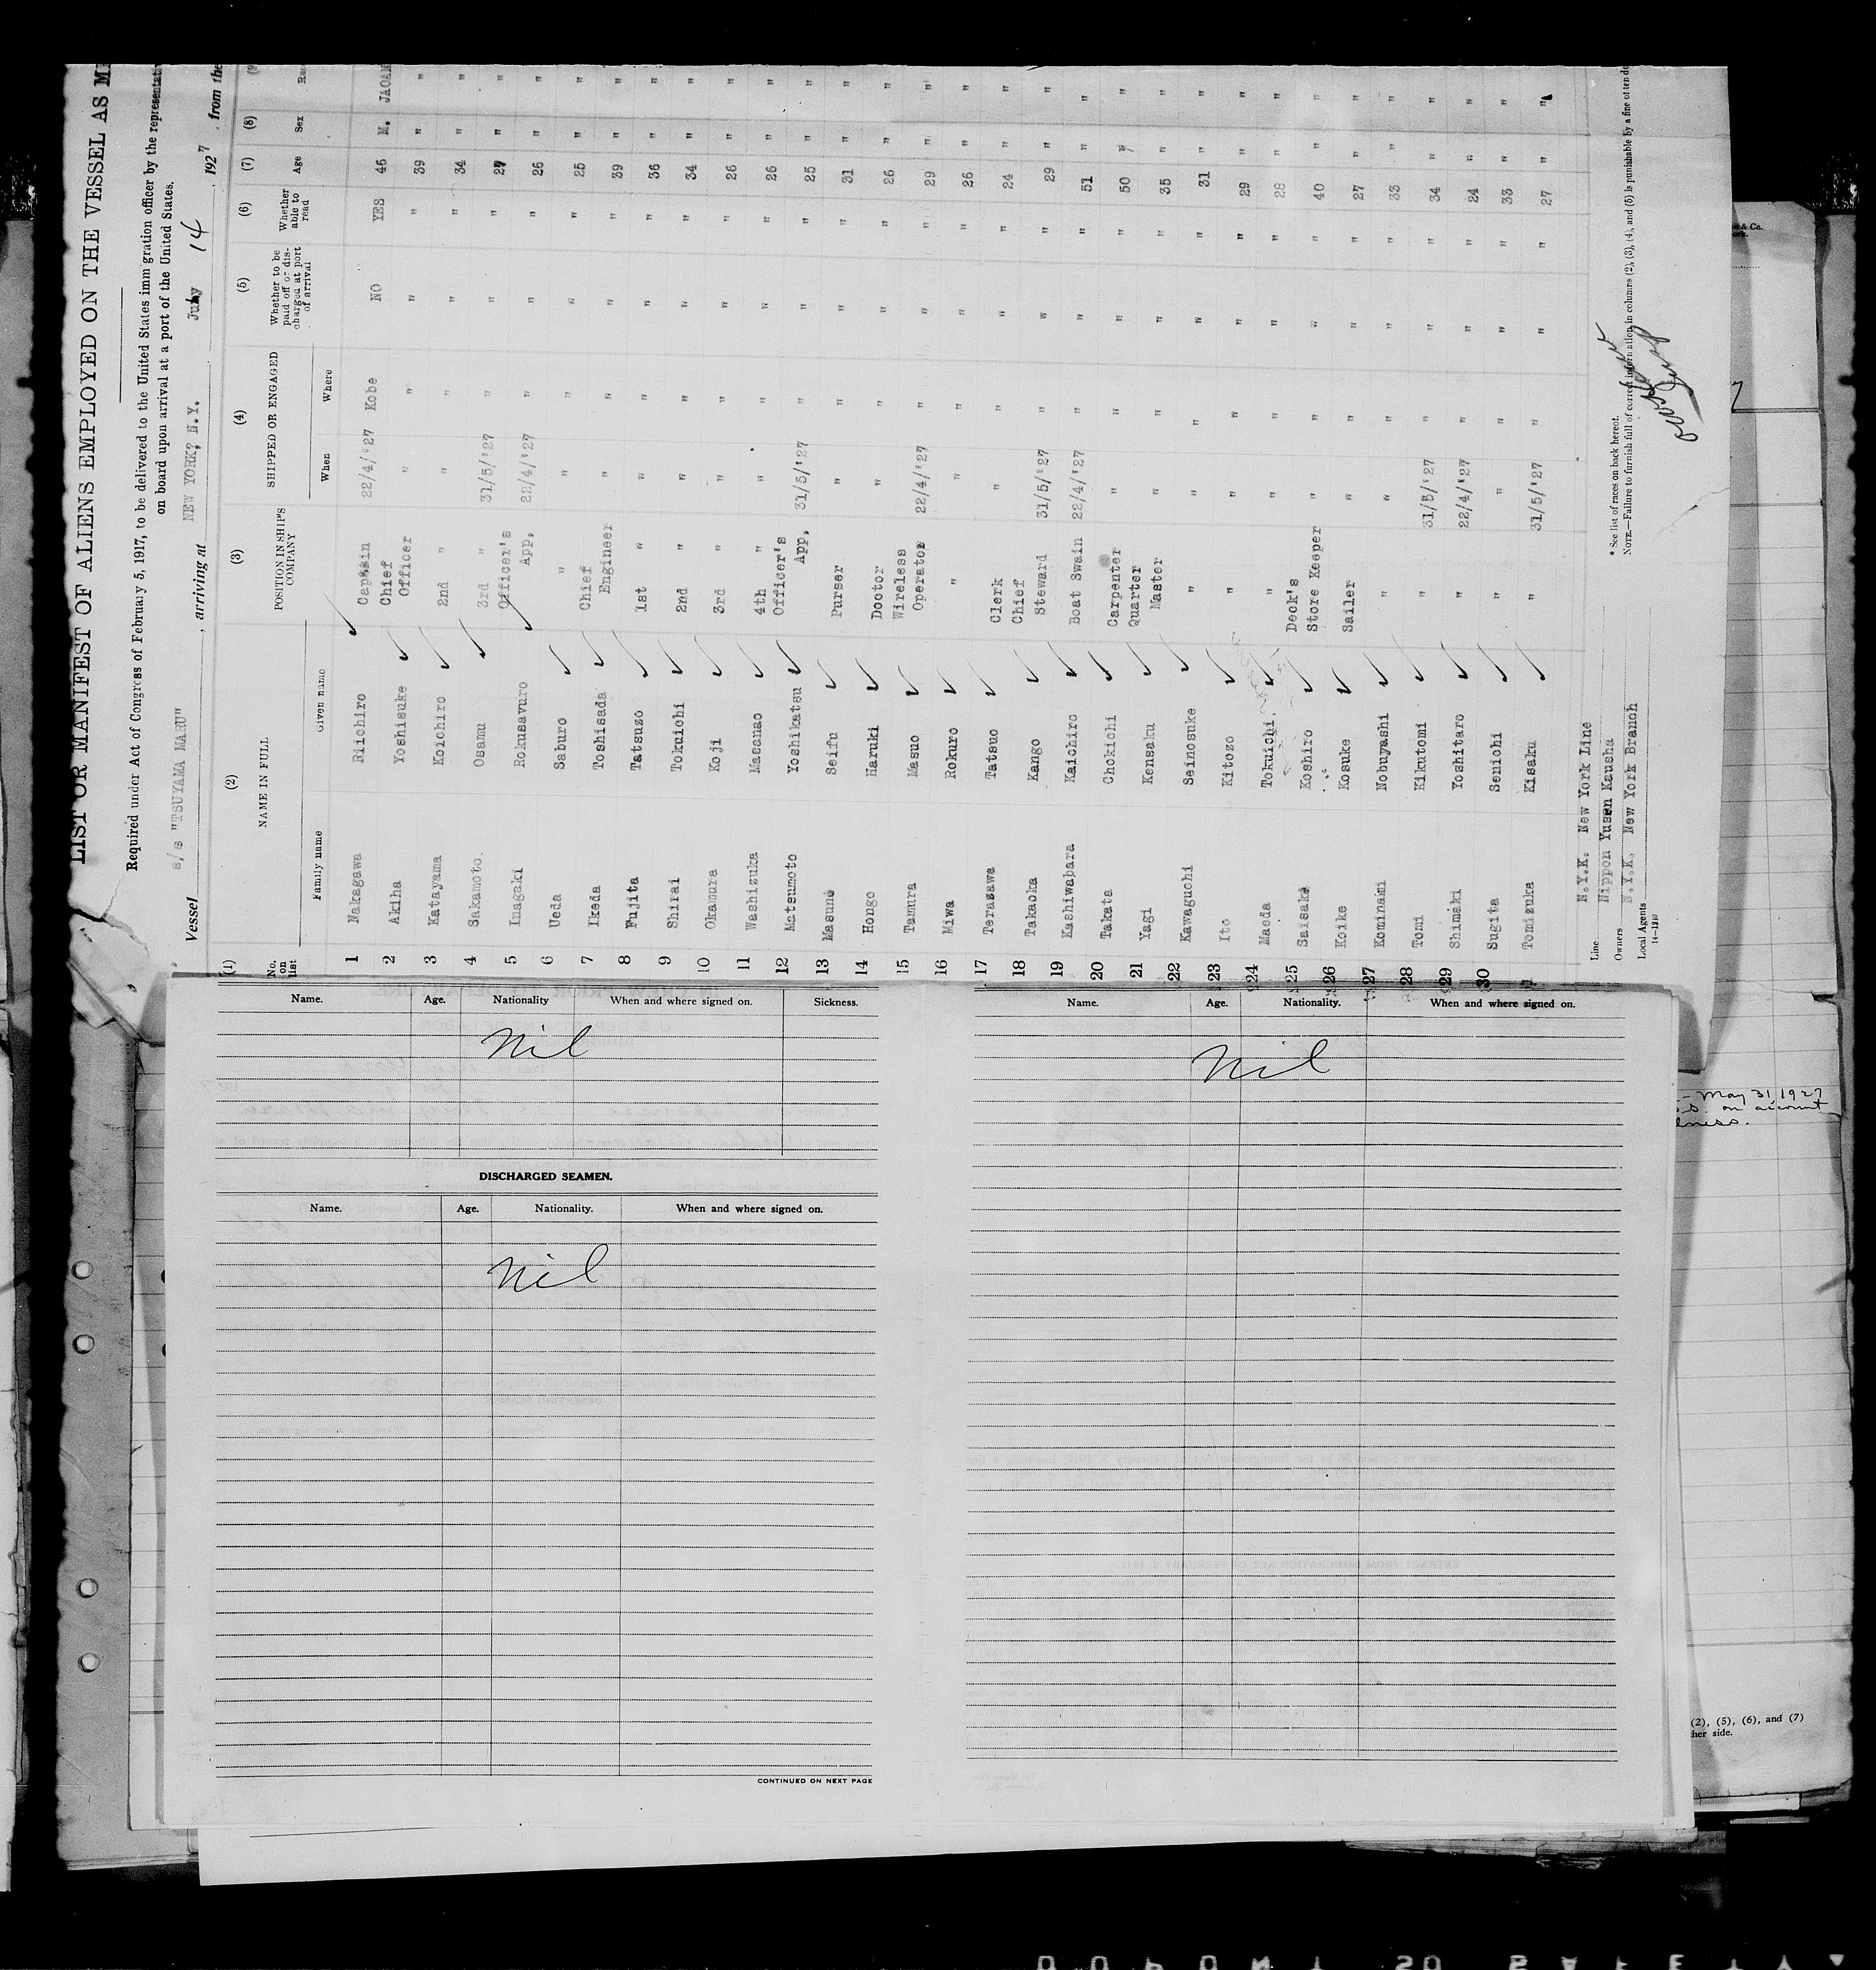 LIST OR MANIFEST OF ALIENS EMPLOYED ON THE VESSEL AS
Required under Act of Congress of February 5, 1917, to be delivered to the United States immigration officer by the
on board upon arrival at a port of the United States.
Vessel s/s "TSUYAMA MARU", arriving at NEW YORK? N.Y. July 14 1927, from the
(1) (2) (3) (4) (5) (6) (7) (8)
No. on list NAME IN FULL POSITION IN SHIP'S COMPANY SHIPPED OR ENGAGED Whether to be paid off or discharged at port of arrival Whether able to read Age Sex
Family name Given name When Where
1 Nakagawa Riichiro Captain 22/4/'27 Kobe NO YES 46 M.
2 Akiha Yoshisuke Chief Officer " " " " 39 " "
3 Katayama Koichiro 2nd " " " " " 34 " "
4 Sakamoto. Osamu 3rd " 31/5/'27 " " " 27 " "
5 Inagaki Rokusavuro Officer's App. 22/4/'27 " " " 26 " "
6 Ueda Saburo " " " " " 25 " "
7 Ikeda Toshisada Chief Engineer " " " " 39 " "
8 Fujita Tatsuzo 1st " " " " " 36 " "
9 Shirai Tokuichi 2nd " " " " " 34 " "
10 Okamura Koji 3rd " " " " " 26 " "
11 Washizuka Masanao 4th " " " " " 26 " "
12 Matsumoto Yoshikatsu Officer's App. 31/5/'27 " " " 25 " "
13 Masuno Seifu Purser " " " " 31 " "
14 Hongo Haruki Doctor " " " " 26 " "
15 Tamura Masuo Wireless Operator 22/4/'27 " " " 29 " "
16 Miwa Rokuro " " " " " 26 " "
17 Terazawa Tatsuo Clerk " " " " 24 " "
18 Takaoka Kango Chief Steward 31/5/'27 " " " 29 " "
19 Kashiwabara Kaichiro Boat Swain 22/4/'27 " " " 51 " "
20 Takata Chokichi Carpenter " " " " 50 " "
21 Yagi Kensaku Quarter Master " " " " 35 " "
22 Kawaguchi Seinosuke " " " " " 31 " "
23 Ito Kitozo " " " " " 29 " "
24 Maeda Tokuichi. " " " " " 28 " "
25 Saisaka Koshiro Deck's Store Keeper " " " " 40 " "
26 Koike Kosuke Sailer " " " " 27 " "
27 Kominami Nobuyashi " " " " " 33 " "
28 Tomi Kikutomi " 31/5/'27 " " " 34 " "
29 Shimaki Yoshitaro " 22/4/'27 " " " 24 " "
30 Sugita Senichi " " " " " 33 " "
Tomizuka Kisaku " 31/5/'27 " " " 27 " "
Line N.Y.K. New York Line
Owners Nippon Yusen Kausha
Local Agents N.Y.K. New York Branch
14-1240
* See list of races on back hereof.
NOTE.—Failure to furnish full of correct information in columns (2), (3), (4), and (5) is punishable by a fine of ten
Name. Age. Nationality When and where signed on. Sickness.
Nil
DISCHARGED SEAMEN.
Name. Age. Nationality. When and where signed on.
Nil
CONTINUED ON NEXT PAGE
Name. Age. Nationality. When and where signed on.
Nil
& Co.
May 31, 1927
on account
(2), (5), (6), and (7)
her side.